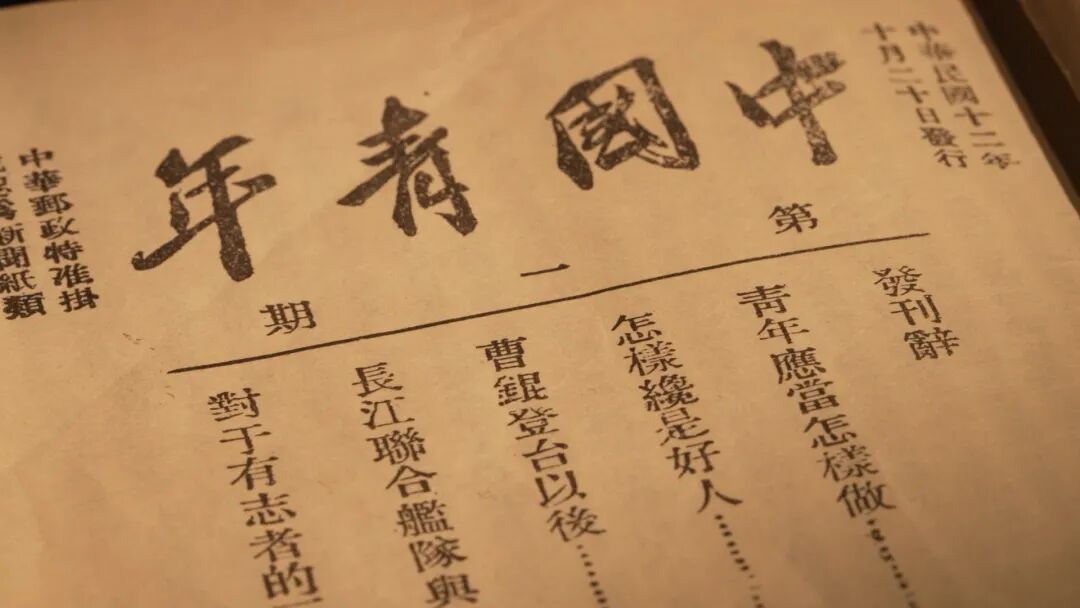 中華民國十二年
十月二十日發行
中國青年
第一期
發刊辭
青年應當怎樣做
怎樣纔是好人
曹錕登台以後
長江聯合艦隊與
對于有志者的
中華郵政特准掛
新聞紙類